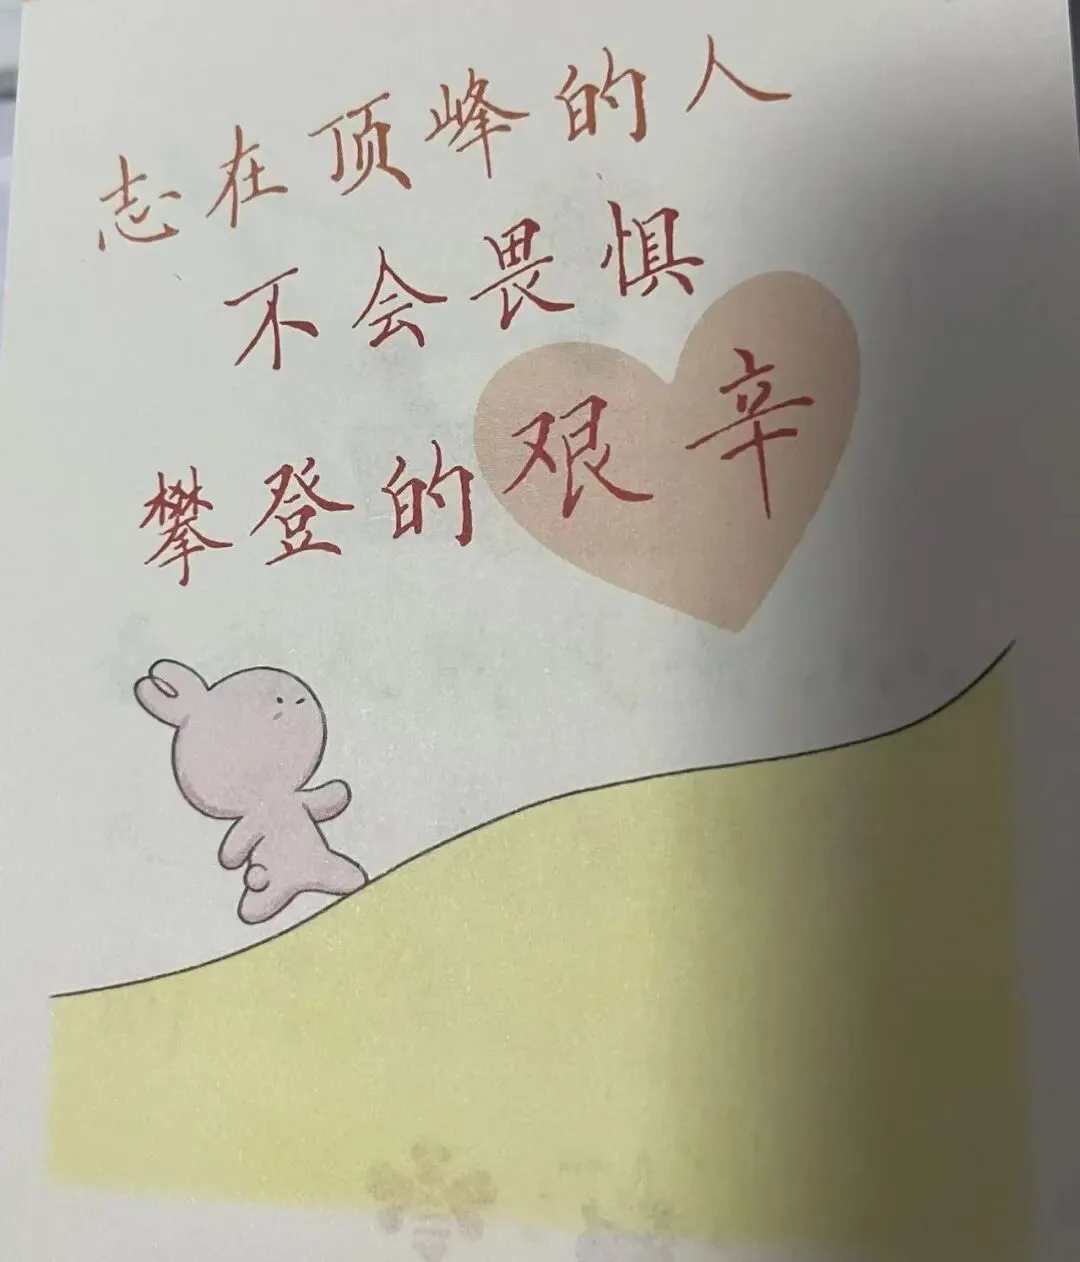 志在顶峰的人
不会畏惧
攀登的艰辛